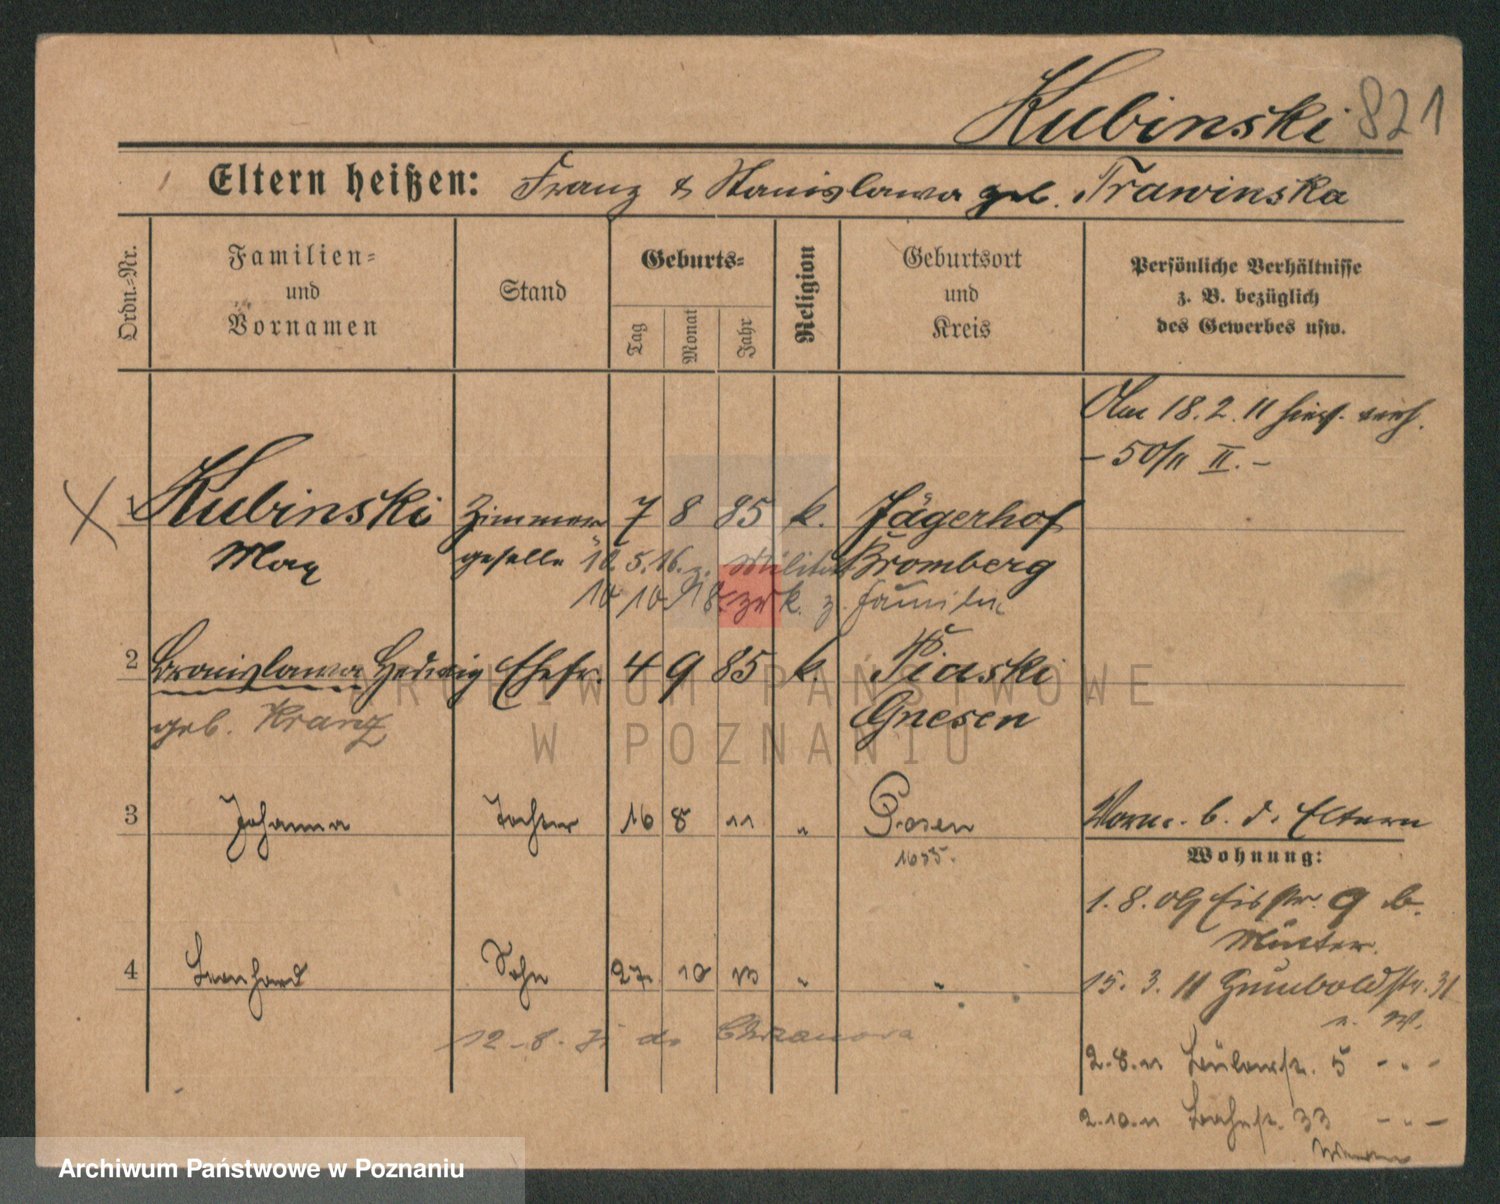 Kubinski 821
Eltern heißen: Franz & Stanislawa geb. Trawinska
Ordn.-Nr.
Familien-
und
Vornamen
Stand
Geburts-
Tag
Monat
Jahr
Religion
Geburtsort
und
Kreis
Persönliche Verhältnisse
z. B. bezüglich
des Gewerbes usw.
Am 18.2.11 hier verh.
- 50/11 II. -
1 Kubinski Zimmer 7 8 85 k. Jägerhof
Max geselle Bromberg
10.5.16. z. Militär
10 10 18 zurk. z. Familie
2 Bronislawa Hedwig Ehefr. 4 9 85 k. Piaski
geb. Kranz Gnesen
3 Johanna Tochter 16 8 11 " Posen
1655.
Vorm. b. d. Eltern
Wohnung:
1.8.09 9 b.
Mutter.
4 Leonhard Sohn 27 10 13 " "
15. 3. 11 Humboldstr. 31
n. W.
12.-8. do Chrzanowa
2.8.11 Bülowstr. 5 - " -
2.10.11 33 - " -
ARCHIWUM PAŃSTWOWE
W POZNANIU
Archiwum Państwowe w Poznaniu